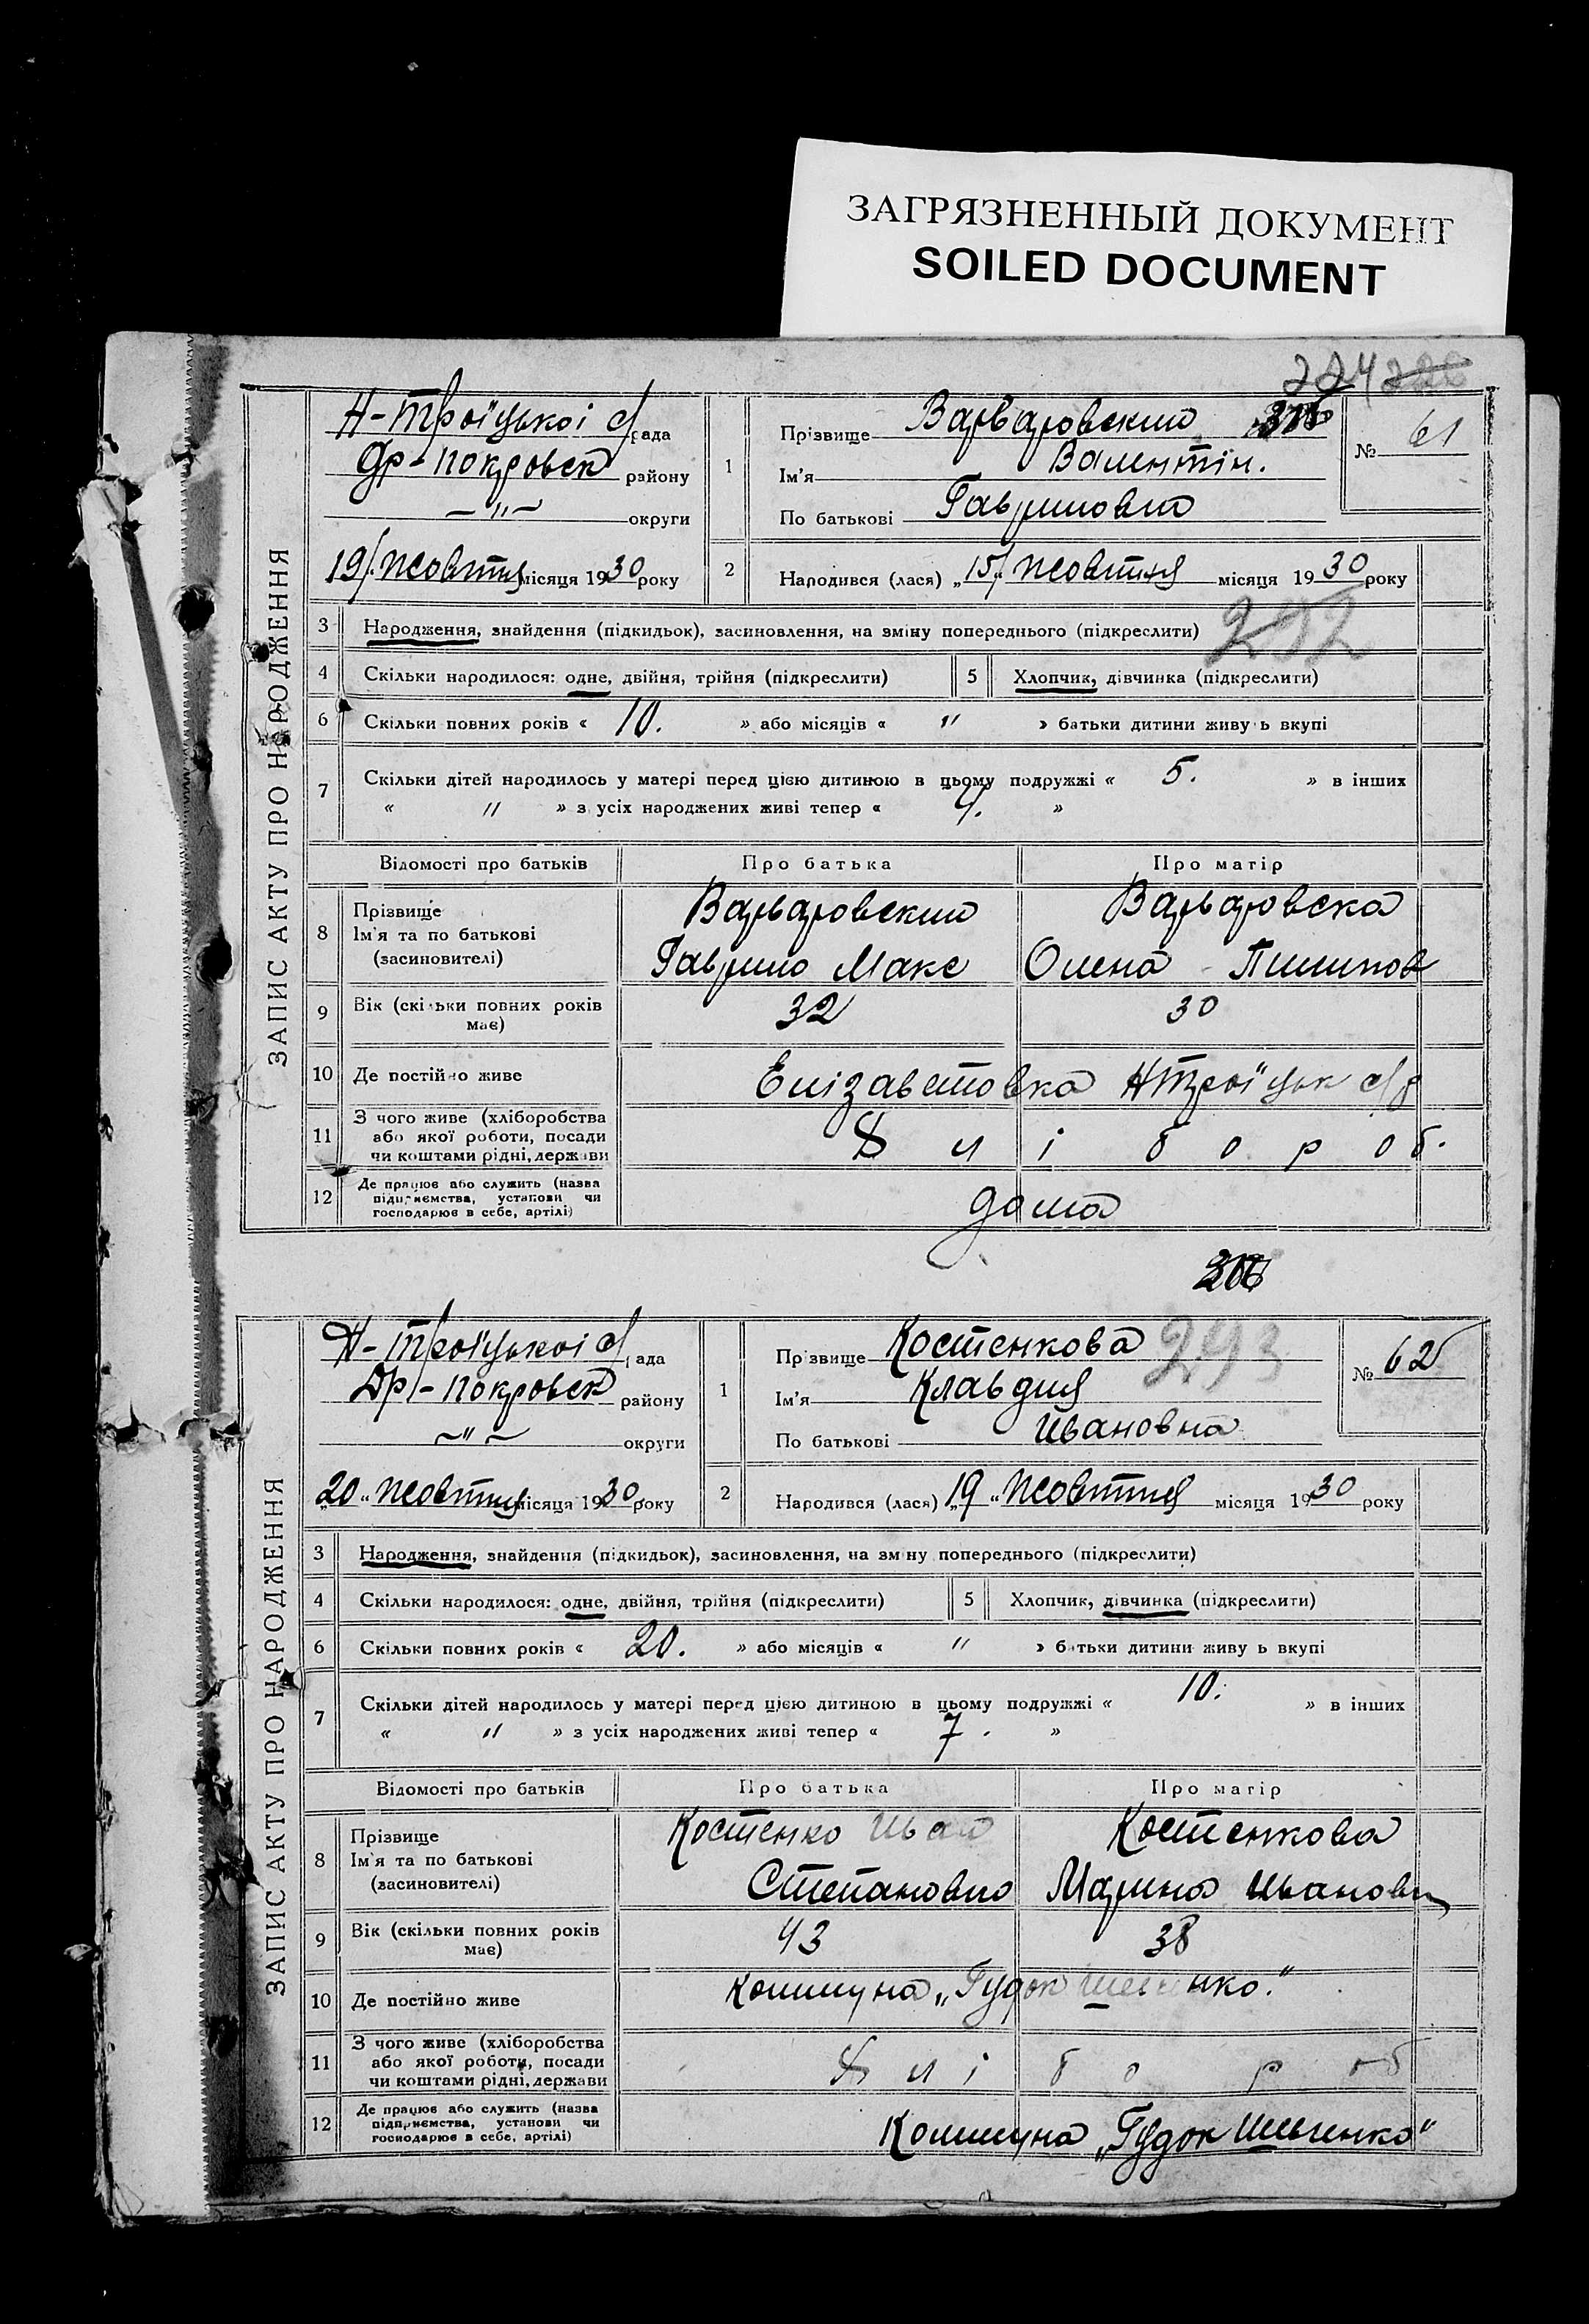 ЗАГРЯЗНЕННЫЙ ДОКУМЕНТ
SOILED DOCUMENT
224 220
ЗАПИС АКТУ ПРО НАРОДЖЕННЯ
Н-Троїцької с/рада
Др-Покровск району
—"— округи
19/Жовтня місяця 1930 року
1 Прізвище Варваровский
Ім'я Валентін.
По батькові Гаврилович
№ 61
2 Народився (лася) „15/" Жовтня місяця 1930 року
292
3 Народження, знайдення (підкидьок), засиновлення, на зміну попереднього (підкреслити)
4 Скільки народилося: одне, двійня, трійня (підкреслити) 5 Хлопчик, дівчинка (підкреслити)
6 Скільки повних років « 10. » або місяців « " » батьки дитини живу ь вкупі
7 Скільки дітей народилось у матері перед цією дитиною в цьому подружжі « 5. » в інших
« " » з усіх народжених живі тепер « 4. »
Відомості про батьків Про батька Про матір
8 Прізвище
Ім'я та по батькові
(засиновителі)
Варваровский Варваровска
Гаврило Макс Олена Пилипов
9 Вік (скільки повних років має) 32 30
10 Де постійно живе Елізаветовка НТроїцьк с/р
11 З чого живе (хліборобства
або якої роботи, посади
чи коштами рідні, держави
Хлібороб.
12 Де працює або служить (назва
підприємства, установи чи
господарює в себе, артілі)
дома
ЗАПИС АКТУ ПРО НАРОДЖЕННЯ
Н-Троїцької с/рада
Др-Покровск району
—"— округи
„20" Жовтня місяця 1930 року
1 Прізвище Костенкова 293
Ім'я Клавдия
По батькові Ивановна
№ 62
2 Народився (лася) „19" Жовтня місяця 1930 року
3 Народження, знайдення (підкидьок), засиновлення, на зміну попереднього (підкреслити)
4 Скільки народилося: одне, двійня, трійня (підкреслити) 5 Хлопчик, дівчинка (підкреслити)
6 Скільки повних років « 20. » або місяців « " » батьки дитини живу ь вкупі
7 Скільки дітей народилось у матері перед цією дитиною в цьому подружжі « 10. » в інших
« " » з усіх народжених живі тепер « 7. »
Відомості про батьків Про батька Про матір
8 Прізвище
Ім'я та по батькові
(засиновителі)
Костенко Иван Костенкова
Степанович Марина Иванов
9 Вік (скільки повних років має) 43 38
10 Де постійно живе Коммуна „Гудок Шевченко."
11 З чого живе (хліборобства
або якої роботи, посади
чи коштами рідні, держави
Хлібороб
12 Де працює або служить (назва
підприємства, установи чи
господарює в себе, артілі)
Коммуна „Гудок Шевченко"